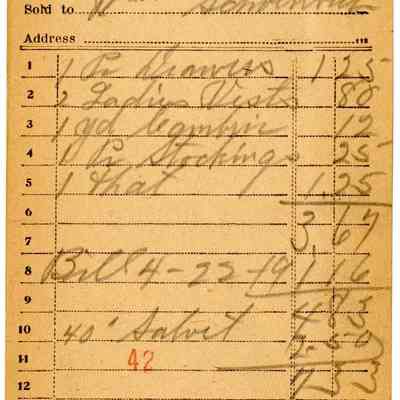 Sold to
Address
1 1 Pr Drawers 1 25
2 2 Ladies Vests 80
3 1 yd Cambric 12
4 1 Pr Stockings 25
5 1 that 1.25
6 3,67
7
8 Bill 4-22-19 1,16
9 4 83
10 40" Salvet 2.50
11 42 7 33
12